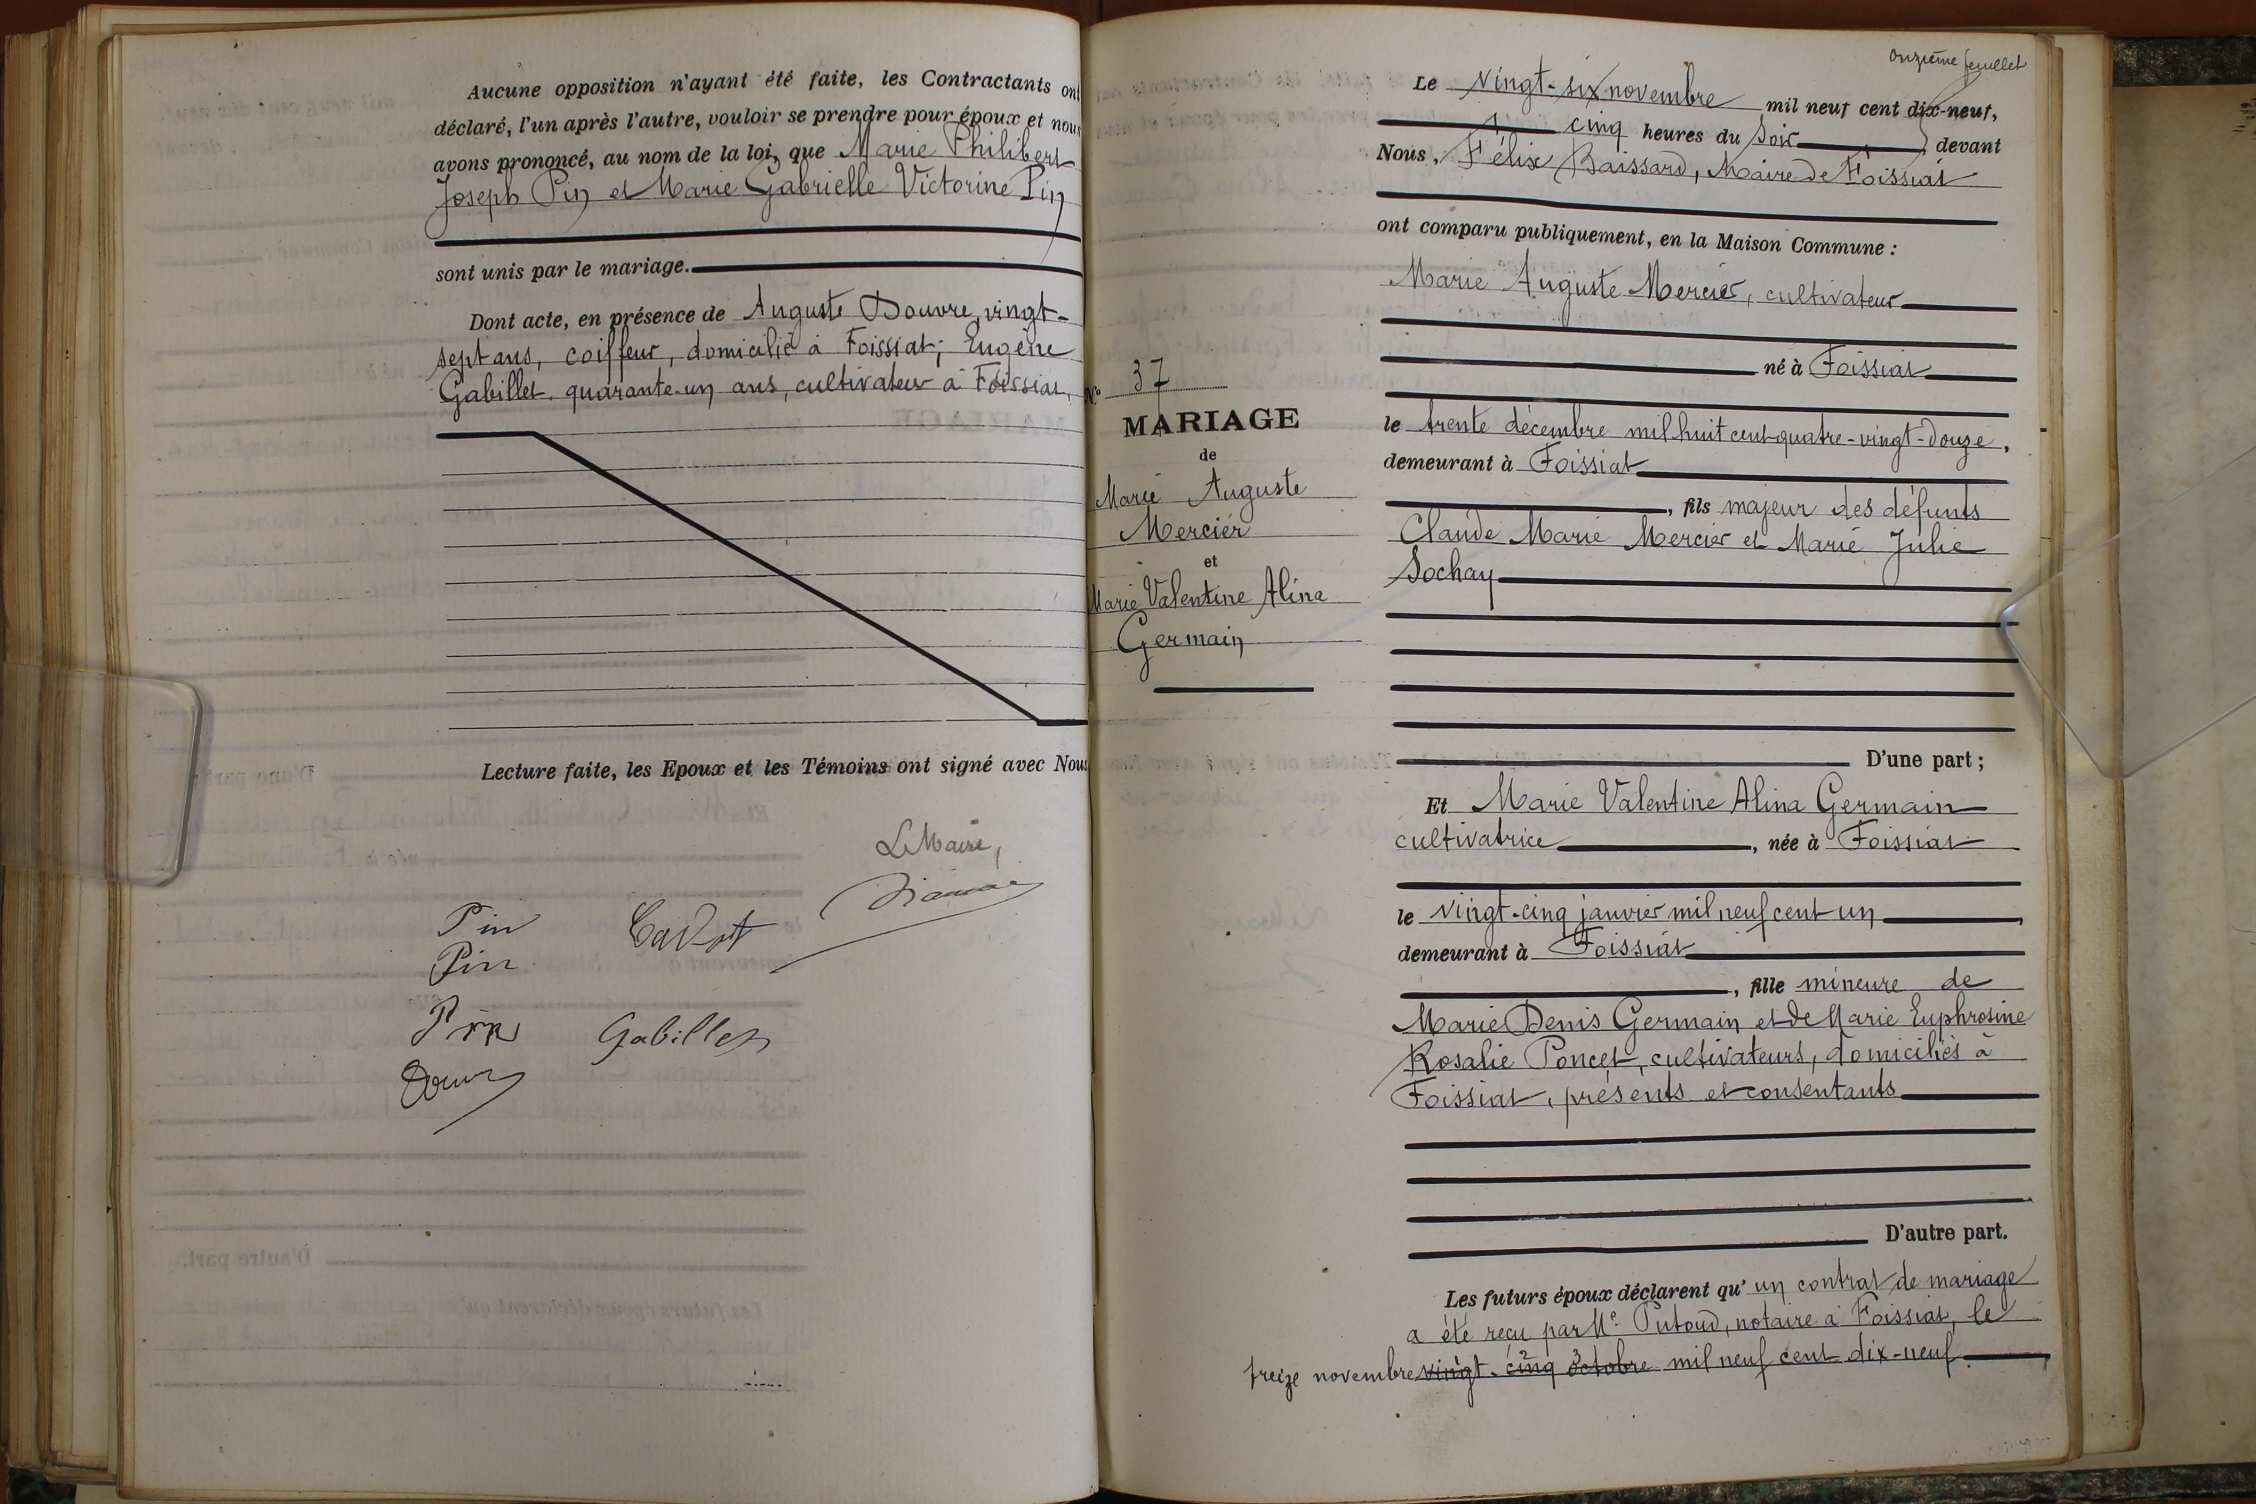 Aucune opposition n'ayant été faite, les Contractants ont
déclaré, l'un après l'autre, vouloir se prendre pour époux et nous
avons prononcé, au nom de la loi, que Marie Philibert
Joseph Pin et Marie Gabrielle Victorine Pin
sont unis par le mariage.
Dont acte, en présence de Auguste Douvre, vingt-
sept ans, coiffeur, domicilié à Foissiat; Eugène
Gabillet quarante-un ans, cultivateur à Foissiat,
Lecture faite, les Epoux et les Témoins ont signé avec Nous
Le Maire,
Pin
Pin
Pin
Gabillet
Onzième feuillet
N° 37
MARIAGE
de
Marie Auguste
Mercier
et
Marie Valentine Alina
Germain
Le vingt-six novembre mil neuf cent dix-neuf,
cinq heures du soir, devant
Nous, Félix Baissard, Maire de Foissiat
ont comparu publiquement, en la Maison Commune :
Marie Auguste Mercier, cultivateur
né à Foissiat
le trente décembre mil huit cent quatre-vingt-douze,
demeurant à Foissiat
, fils majeur des défunts
Claude Marie Mercier et Marie Julie
Sochay
D'une part ;
Et Marie Valentine Alina Germain
cultivatrice, née à Foissiat
le vingt-cinq janvier mil neuf cent un,
demeurant à Foissiat
, fille mineure de
Marie Denis Germain et de Marie Euphrosine
Rosalie Poncet, cultivateurs, domiciliés à
Foissiat, présents et consentants
D'autre part.
Les futurs époux déclarent qu'un contrat de mariage
a été reçu par Me Putoud, notaire à Foissiat, le
treize novembre vingt-cinq octobre mil neuf cent dix-neuf.